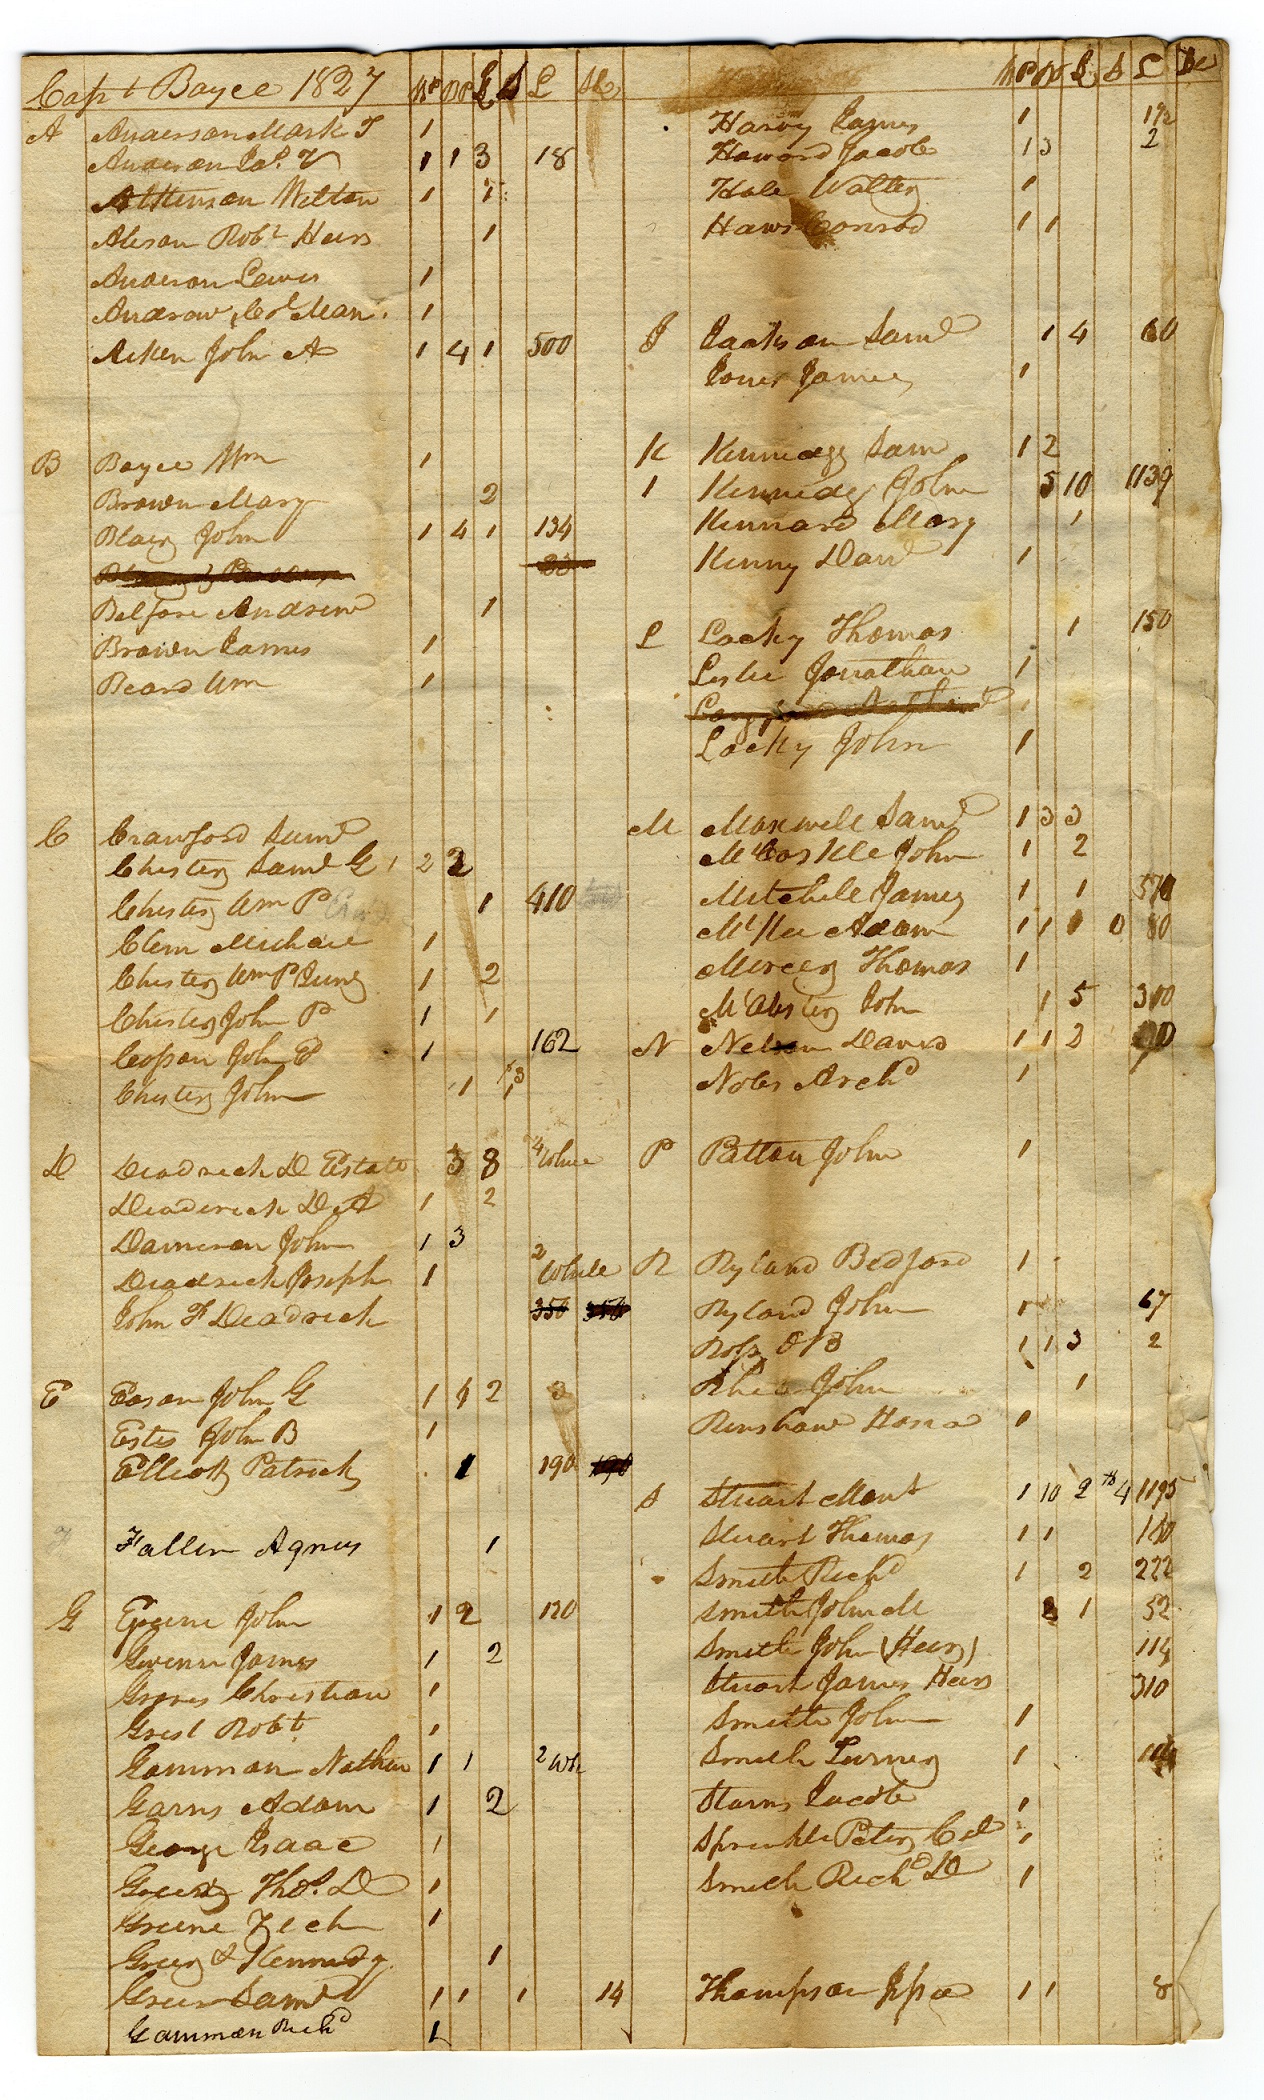 Capt Bayce 1827 WP BP L S L Sc
A Anderson Mark T 1
Anderson Jas. V 1 1 3 18
Atkinson Milton 1 1
Alison Robt Heirs 1
Anderson Lewis 1
Andrew, Col Man. 1
Aiken John A 1 4 1 500
B Bayce Wm 1
Brown Mary 2
Blair John 1 4 1 134
Belfore Andrew 1
Brown James 1
Beard Wm 1
C Crawford Saml
Chester Saml G 1 2 2
Chester Wm P 1 410
Clem Michael 1
Chester Wm P Junr 1 2
Chester John P 1 1
Copson John E 1 162
Chester John 1 1 3
D Deadrick D Estate 3 8 4 Whee
Deaderick D A 1 2
Dameron John 1 3
Deadrick Joseph 1 2 Whee
John F Deadrick 350 350
E Eason John G 1 4 2 3
Estes John B 1
Elliott Patrick 1 190 190
F Fallen Agnes 1
G Greene John 1 2 120
Greene James 1 2
Groves Christian 1
Grest Robt. 1
Gamman Nathan 1 1 2 Wh
Garns Adam 1 2
George Isaac 1
Greer Thos. D 1
Greene Zech 1
Greer & Kennedy 1
Greer Saml 1 1 1 14
Gamman Richd 1
WP BP L S L Sc
Harvy James 1 192
Howard Jacob 1 3 2
Hale Walter 1
Haws Conrod 1 1
J Jackson Saml 1 4 60
Jones James 1
K Kennedy Sam 1 2
1 Kennedy John 5 10 1139
Kennard Mary 1
Kenny Danl 1
L Lacky Thomas 1 150
Leslie Jonathan 1
Lacky John 1
M Maxwell Saml 1 3 3
McCorkle John 1 2
Mitchell James 1 1 570
McKee Adam 1 1 1 0 80
Mercer Thomas 1
McAlister John 1 5 300
N Nelson David 1 1 2
Nobs Archd 1
P Patton John 1
R Ryland Bedford 1
Ryland John 1 67
Ross O B 1 1 3 2
Rhea John 1
Renshaw Hosea 1
S Stuart Mont 1 10 2 4 1195
Stuart Thomas 1 1 180
Smith Richd 1 2 222
Smith John M 3 1 52
Smith John (Heirs) 114
Stuart James Heirs 310
Smith John 1
Smith Turner 1
Starns Jacob 1
Sprinkle Peter Cd 1
Smith Richd D 1
Thompson Jesse 1 1 8